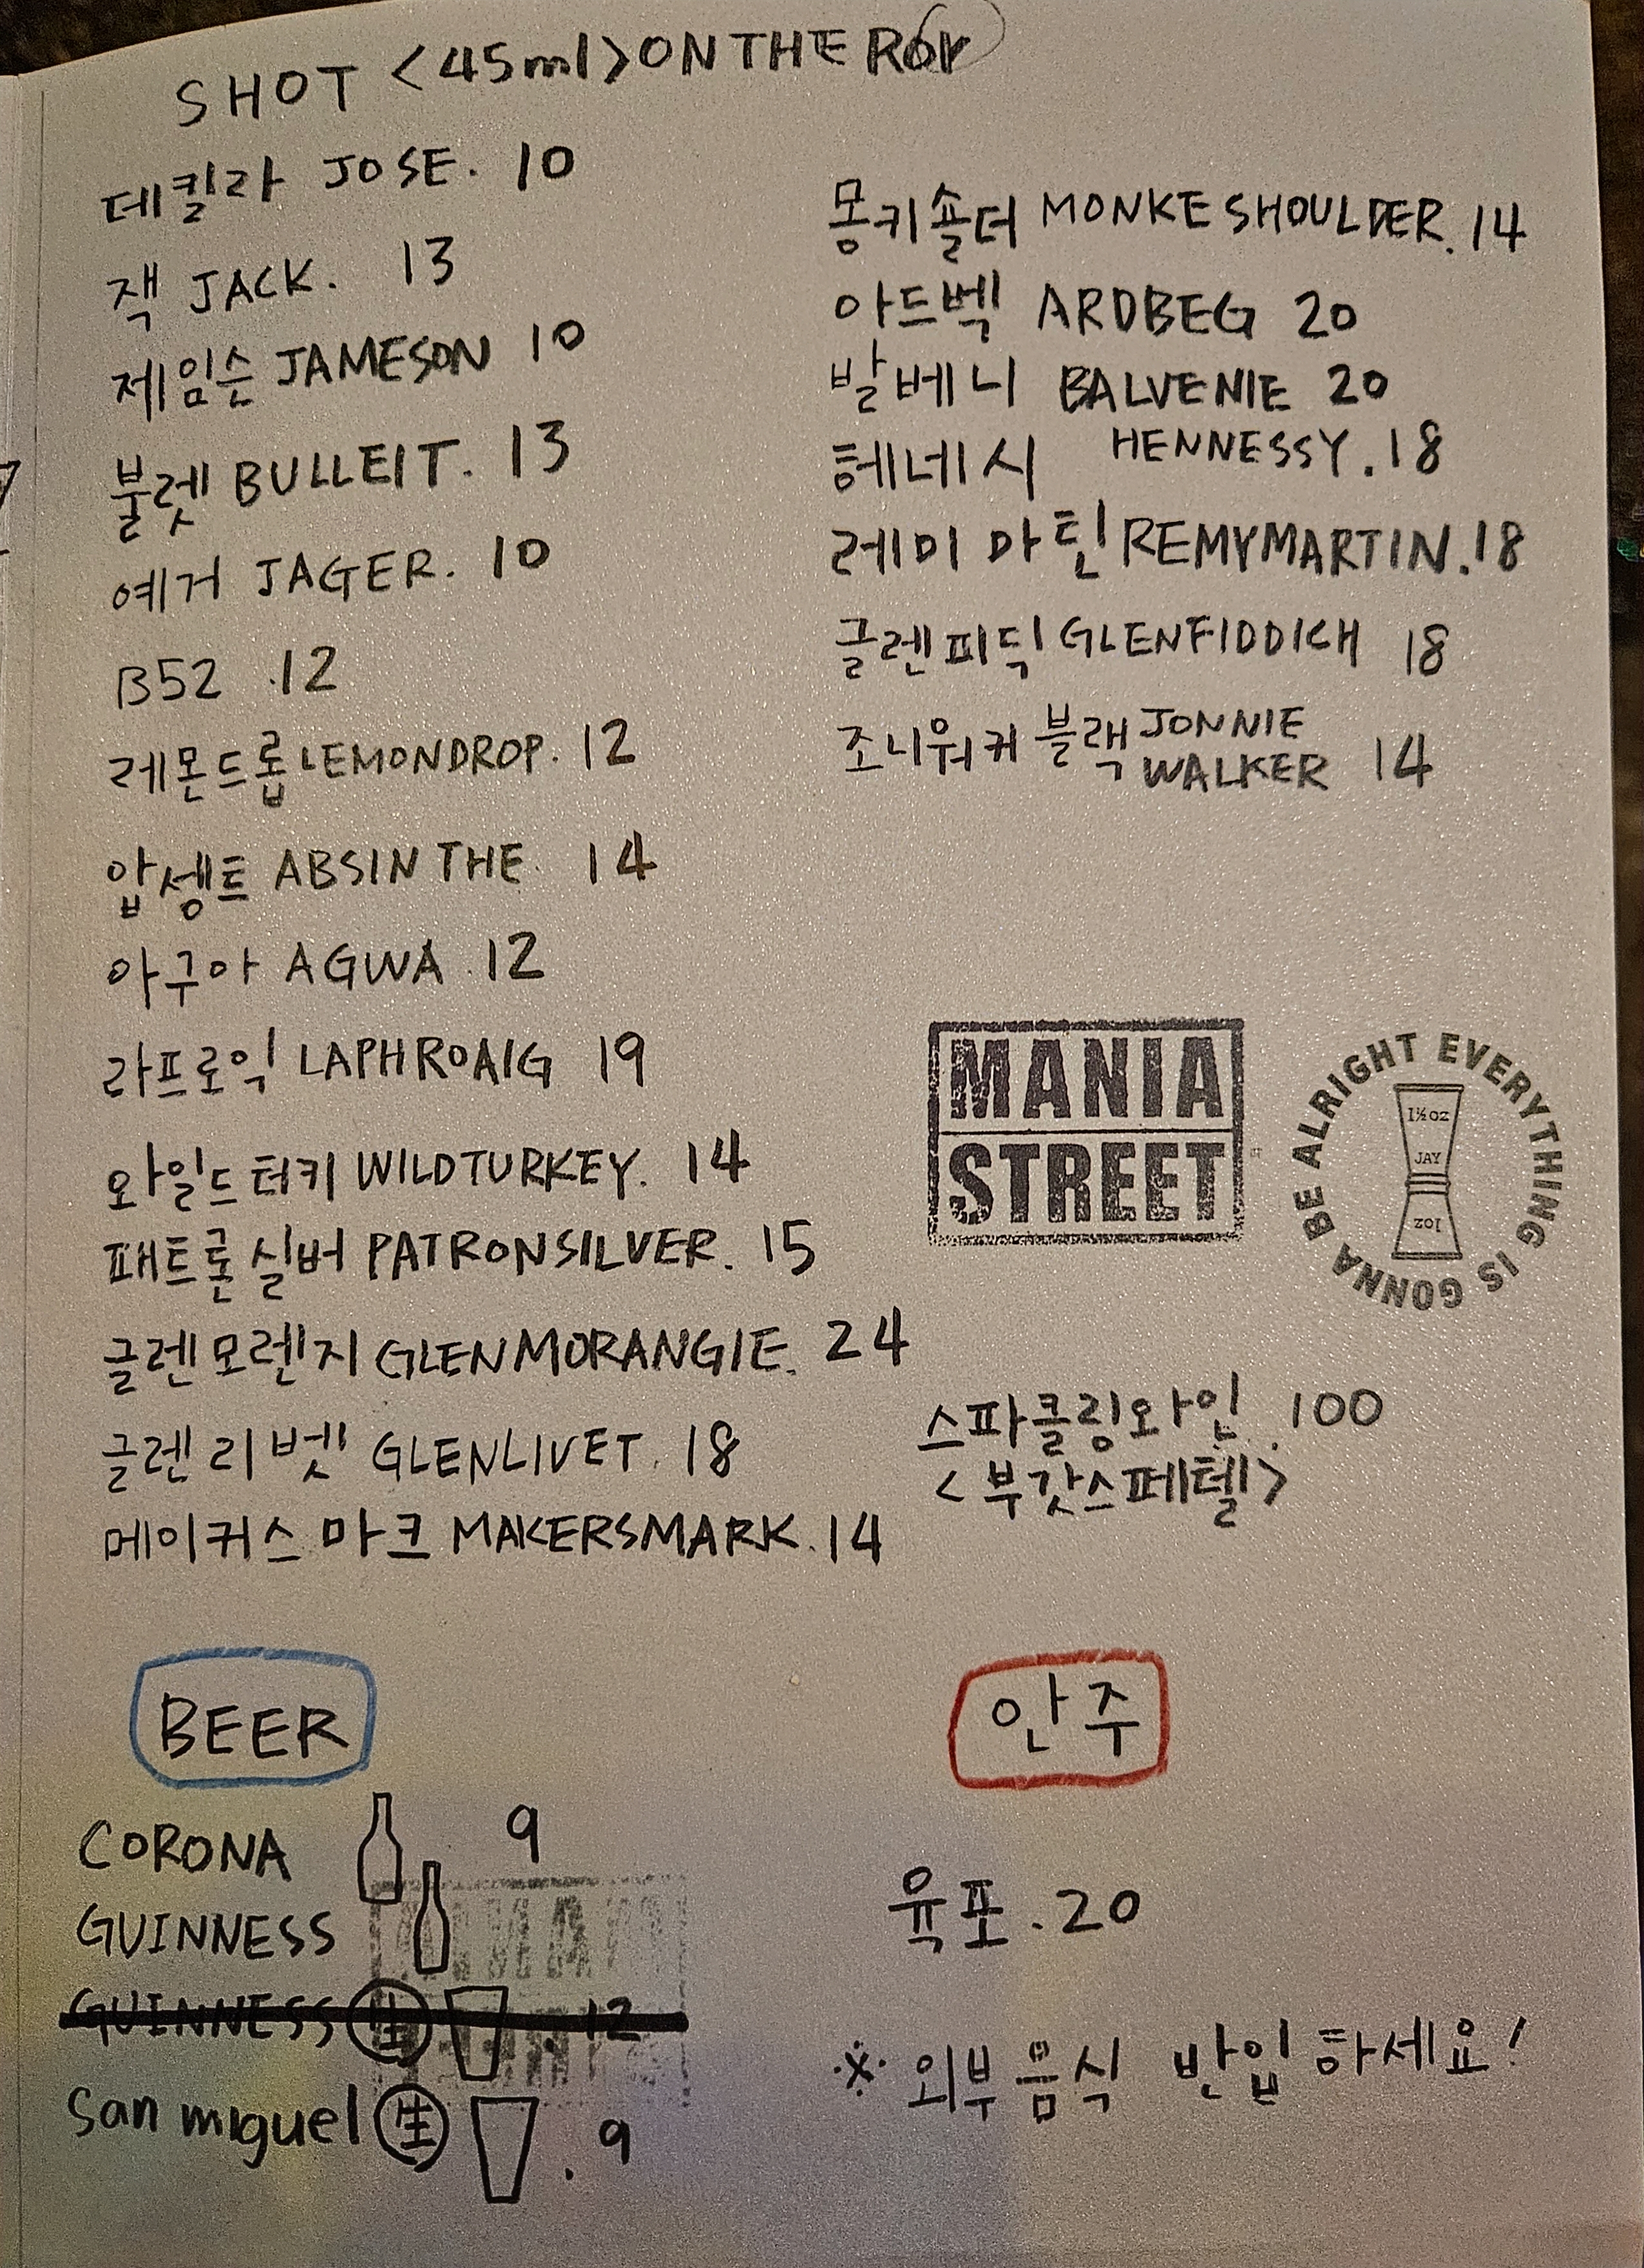 SHOT <45ml> ON THE
데킬라 JOSE. 10
잭 JACK. 13
제임슨 JAMESON 10
불렛 BULLEIT. 13
예거 JAGER. 10
B52 .12
레몬드롭 LEMONDROP. 12
압생트 ABSINTHE. 14
아구아 AGWA .12
라프로익 LAPHROAIG 19
와일드터키 WILDTURKEY. 14
패트론실버 PATRONSILVER. 15
글렌모렌지 GLENMORANGIE. 24
글렌리벳 GLENLIVET. 18
메이커스 마크 MAKERSMARK. 14
몽키숄더 MONKESHOULDER. 14
아드벡 ARDBEG 20
발베니 BALVENIE 20
헤네시 HENNESSY. 18
레미 마틴 REMYMARTIN. 18
글렌피딕 GLENFIDDICH 18
조니워커 블랙 JONNIE
WALKER 14
MANIA
STREET
EVERYTHING IS GONNA BE ALRIGHT
1½oz
JAY
1oz
스파클링와인. 100
<부갓스페텔>
BEER
CORONA 9
GUINNESS
GUINNESS 生 . 12
San miguel 生 . 9
안주
육포. 20
※ 외부음식 반입하세요!